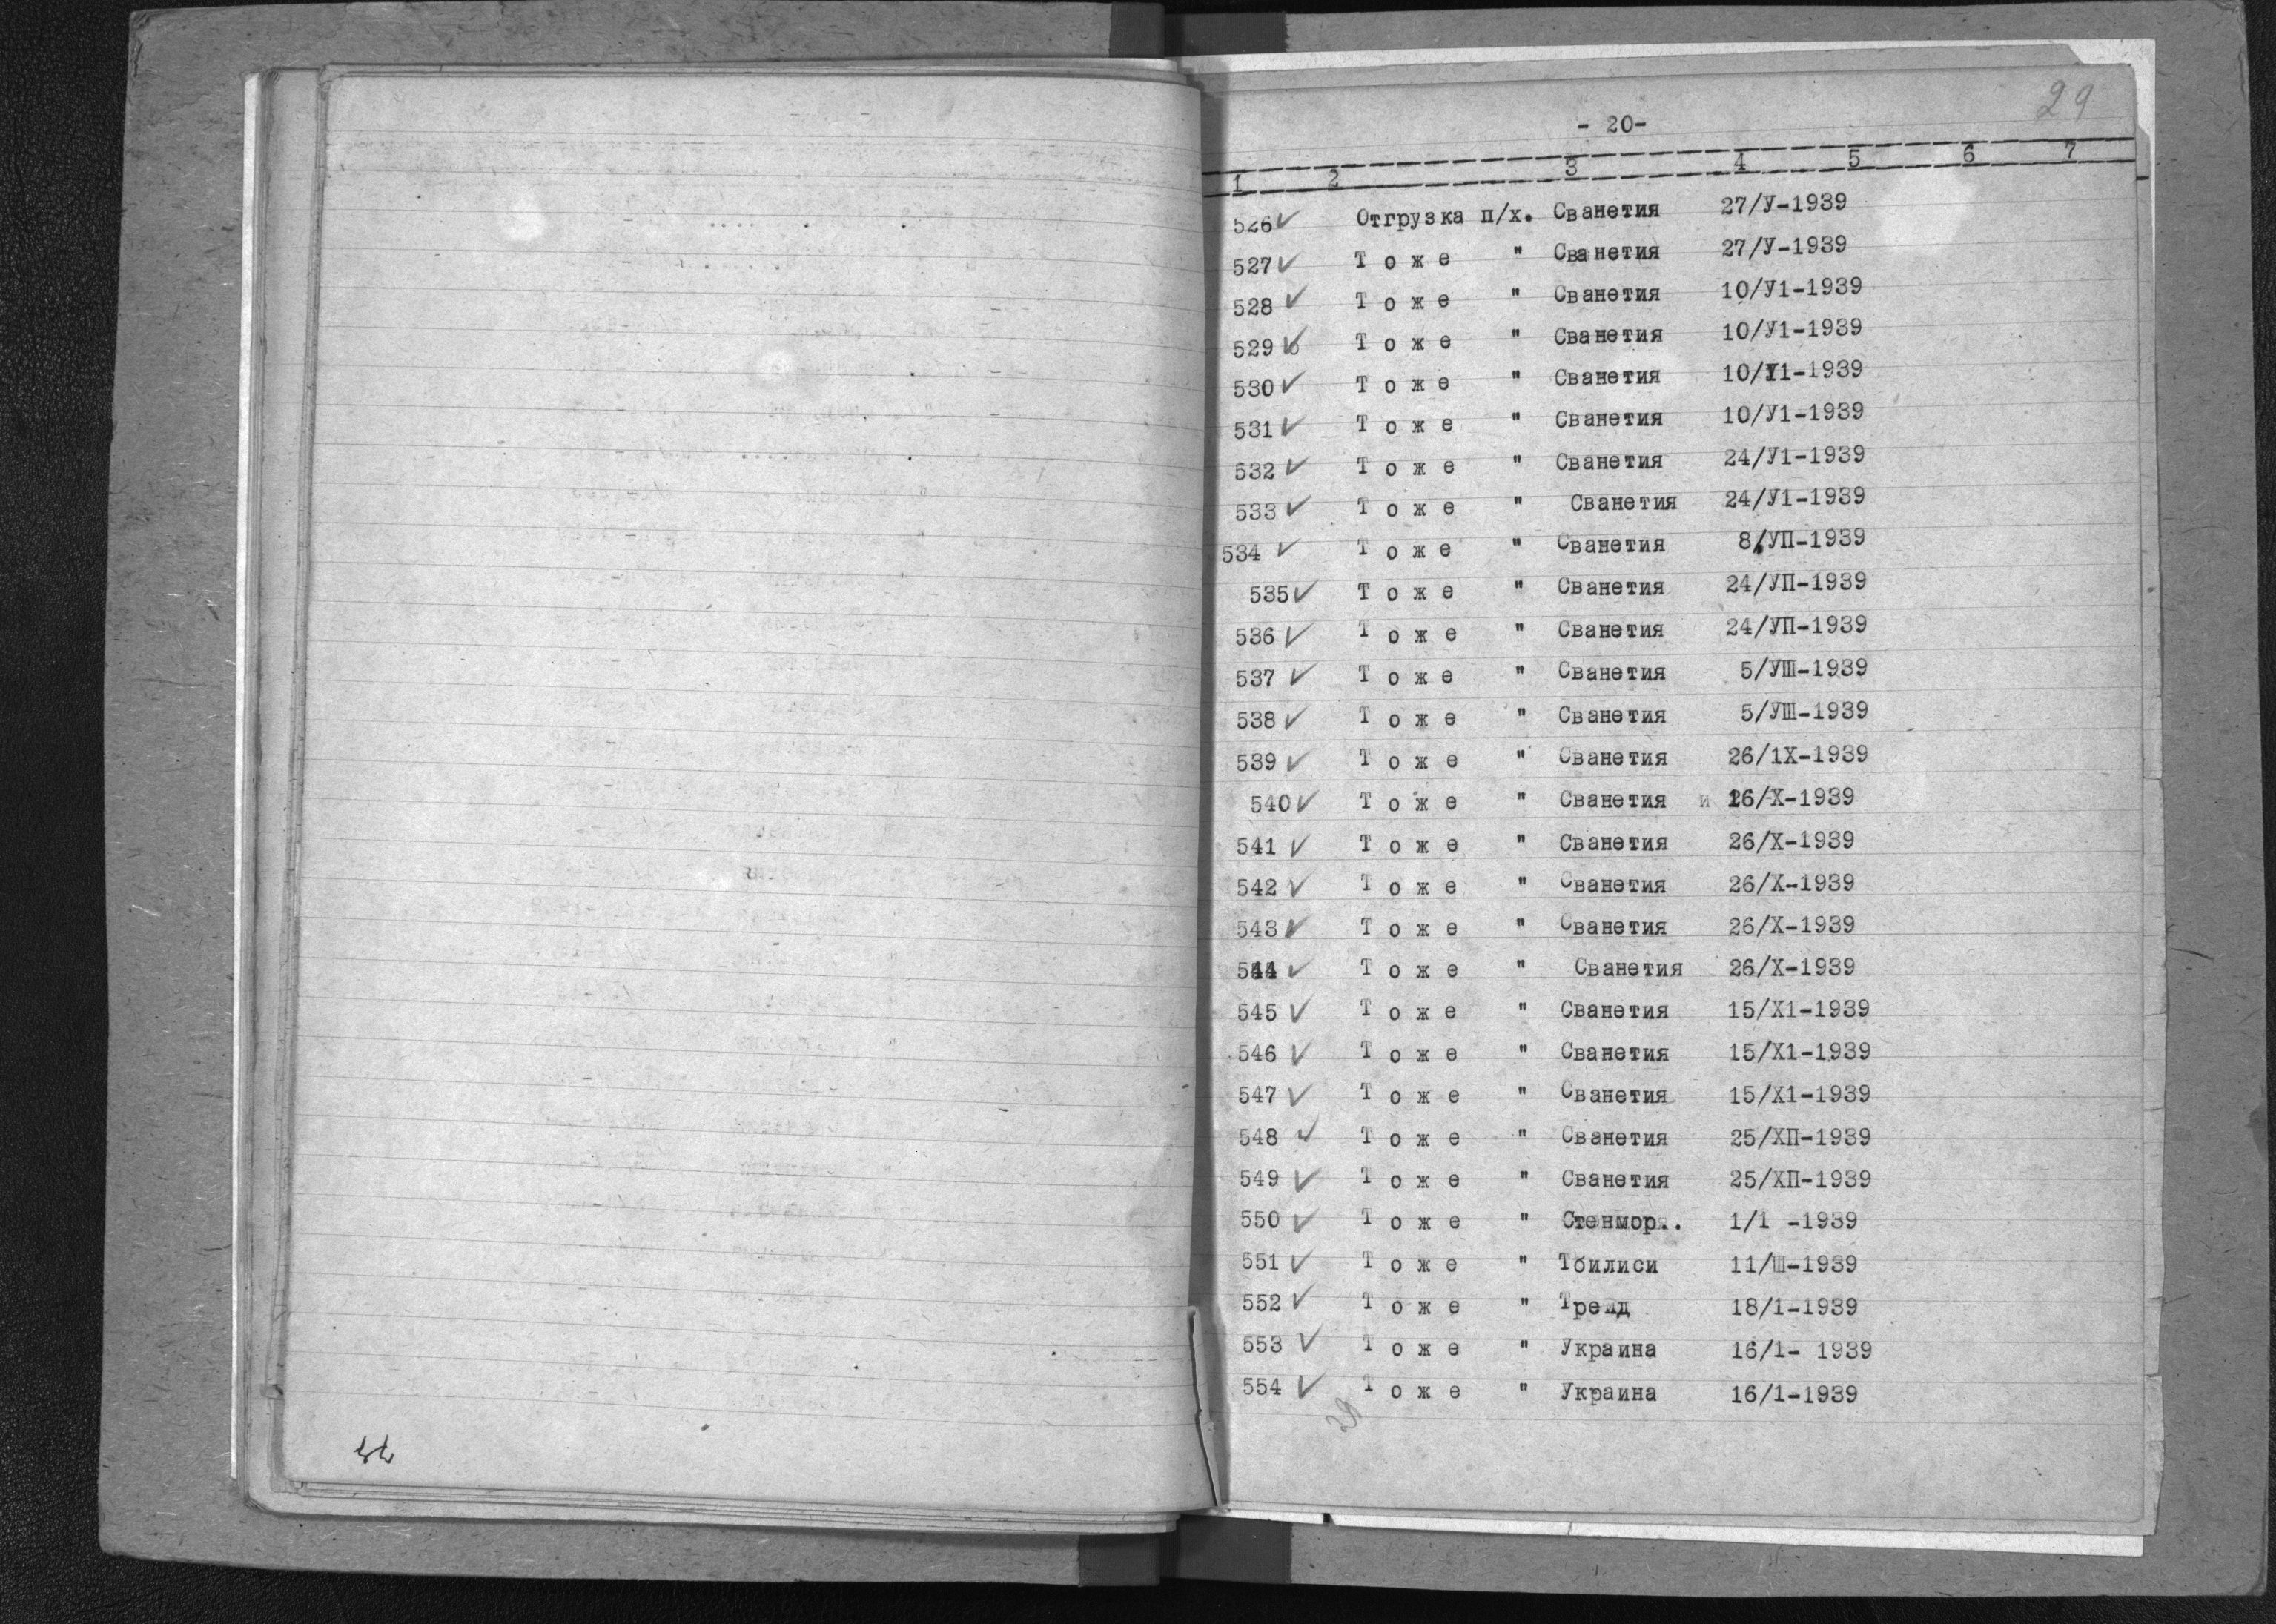 29
- 20-
1 2 3 4 5 6 7
526 ✓ Отгрузка п/х. Сванетия 27/У-1939
527 ✓ Т о ж е " Сванетия 27/У-1939
528 ✓ Т о ж е " Сванетия 10/У1-1939
529 ✓ Т о ж е " Сванетия 10/У1-1939
530 ✓ Т о ж е " Сванетия 10/У1-1939
531 ✓ Т о ж е " Сванетия 10/У1-1939
532 ✓ Т о ж е " Сванетия 24/У1-1939
533 ✓ Т о ж е " Сванетия 24/У1-1939
534 ✓ Т о ж е " Сванетия 8/УП-1939
535 ✓ Т о ж е " Сванетия 24/УП-1939
536 ✓ Т о ж е " Сванетия 24/УП-1939
537 ✓ Т о ж е " Сванетия 5/УШ-1939
538 ✓ Т о ж е " Сванетия 5/УШ-1939
539 ✓ Т о ж е " Сванетия 26/1Х-1939
540 ✓ Т о ж е " Сванетия и 26/Х-1939
541 ✓ Т о ж е " Сванетия 26/Х-1939
542 ✓ Т о ж е " Сванетия 26/Х-1939
543 ✓ Т о ж е " Сванетия 26/Х-1939
544 ✓ Т о ж е " Сванетия 26/Х-1939
545 ✓ Т о ж е " Сванетия 15/Х1-1939
546 ✓ Т о ж е " Сванетия 15/Х1-1939
547 ✓ Т о ж е " Сванетия 15/Х1-1939
548 ✓ Т о ж е " Сванетия 25/ХП-1939
549 ✓ Т о ж е " Сванетия 25/ХП-1939
550 ✓ Т о ж е " Стенмор.. 1/1 -1939
551 ✓ Т о ж е " Тбилиси 11/Ш-1939
552 ✓ Т о ж е " Трейд 18/1-1939
553 ✓ Т о ж е " Украина 16/1- 1939
554 ✓ Т о ж е " Украина 16/1-1939
29